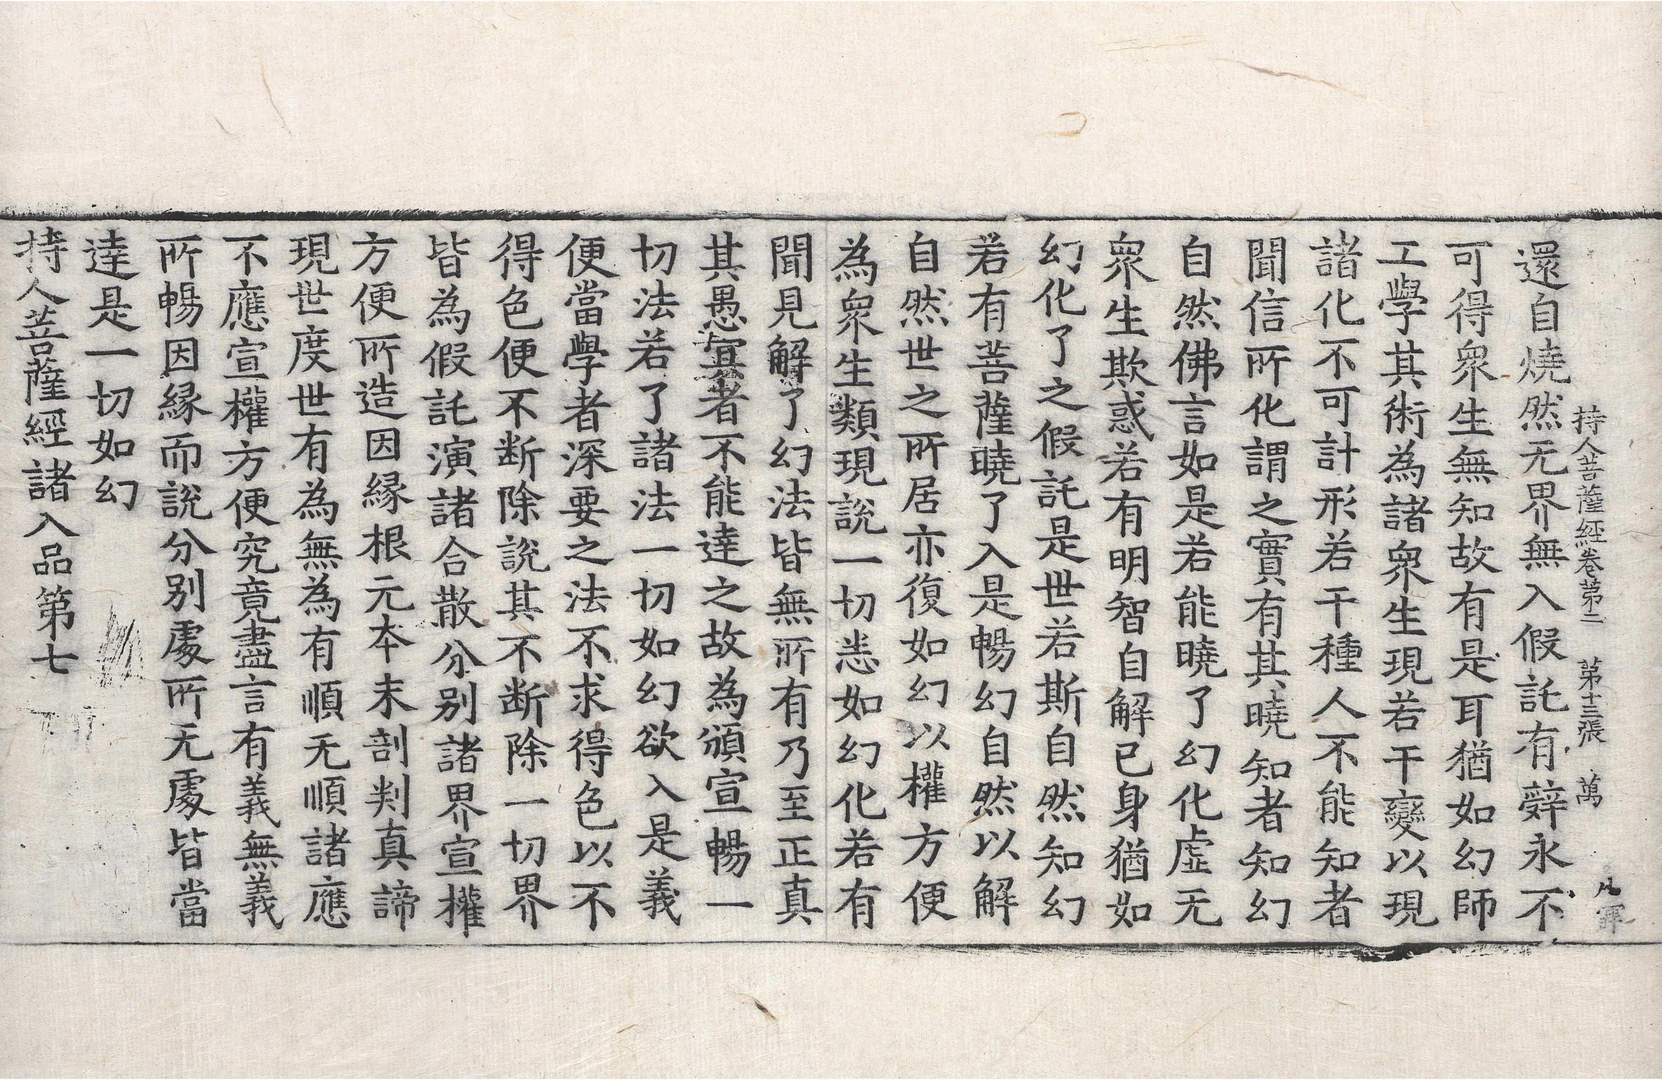 持人菩薩經卷第二 第十三張 萬
還自燒然无界無入假託有辝永不
可得眾生無知故有是耳猶如幻師
工學其術為諸眾生現若干變以現
諸化不可計形若干種人不能知者
聞信所化謂之實有其曉知者知幻
自然佛言如是若能曉了幻化虛无
眾生欺惑若有明智自解已身猶如
幻化了之假託是世若斯自然知幻
若有菩薩曉了入是暢幻自然以解
自然世之所居亦復如幻以權方便
為眾生類現說一切恙如幻化若有
聞見解了幻法皆無所有乃至正真
其愚冥者不能達之故為頒宣暢一
切法若了諸法一切如幻欲入是義
便當學者深要之法不求得色以不
得色便不斷除說其不斷除一切界
皆為假託演諸合散分別諸界宣權
方便所造因緣根元本末剖判真諦
現世度世有為無為有順无順諸應
不應宣權方便究竟盡言有義無義
所暢因緣而說分別處所无處皆當
達是一切如幻
持人菩薩經諸入品第七